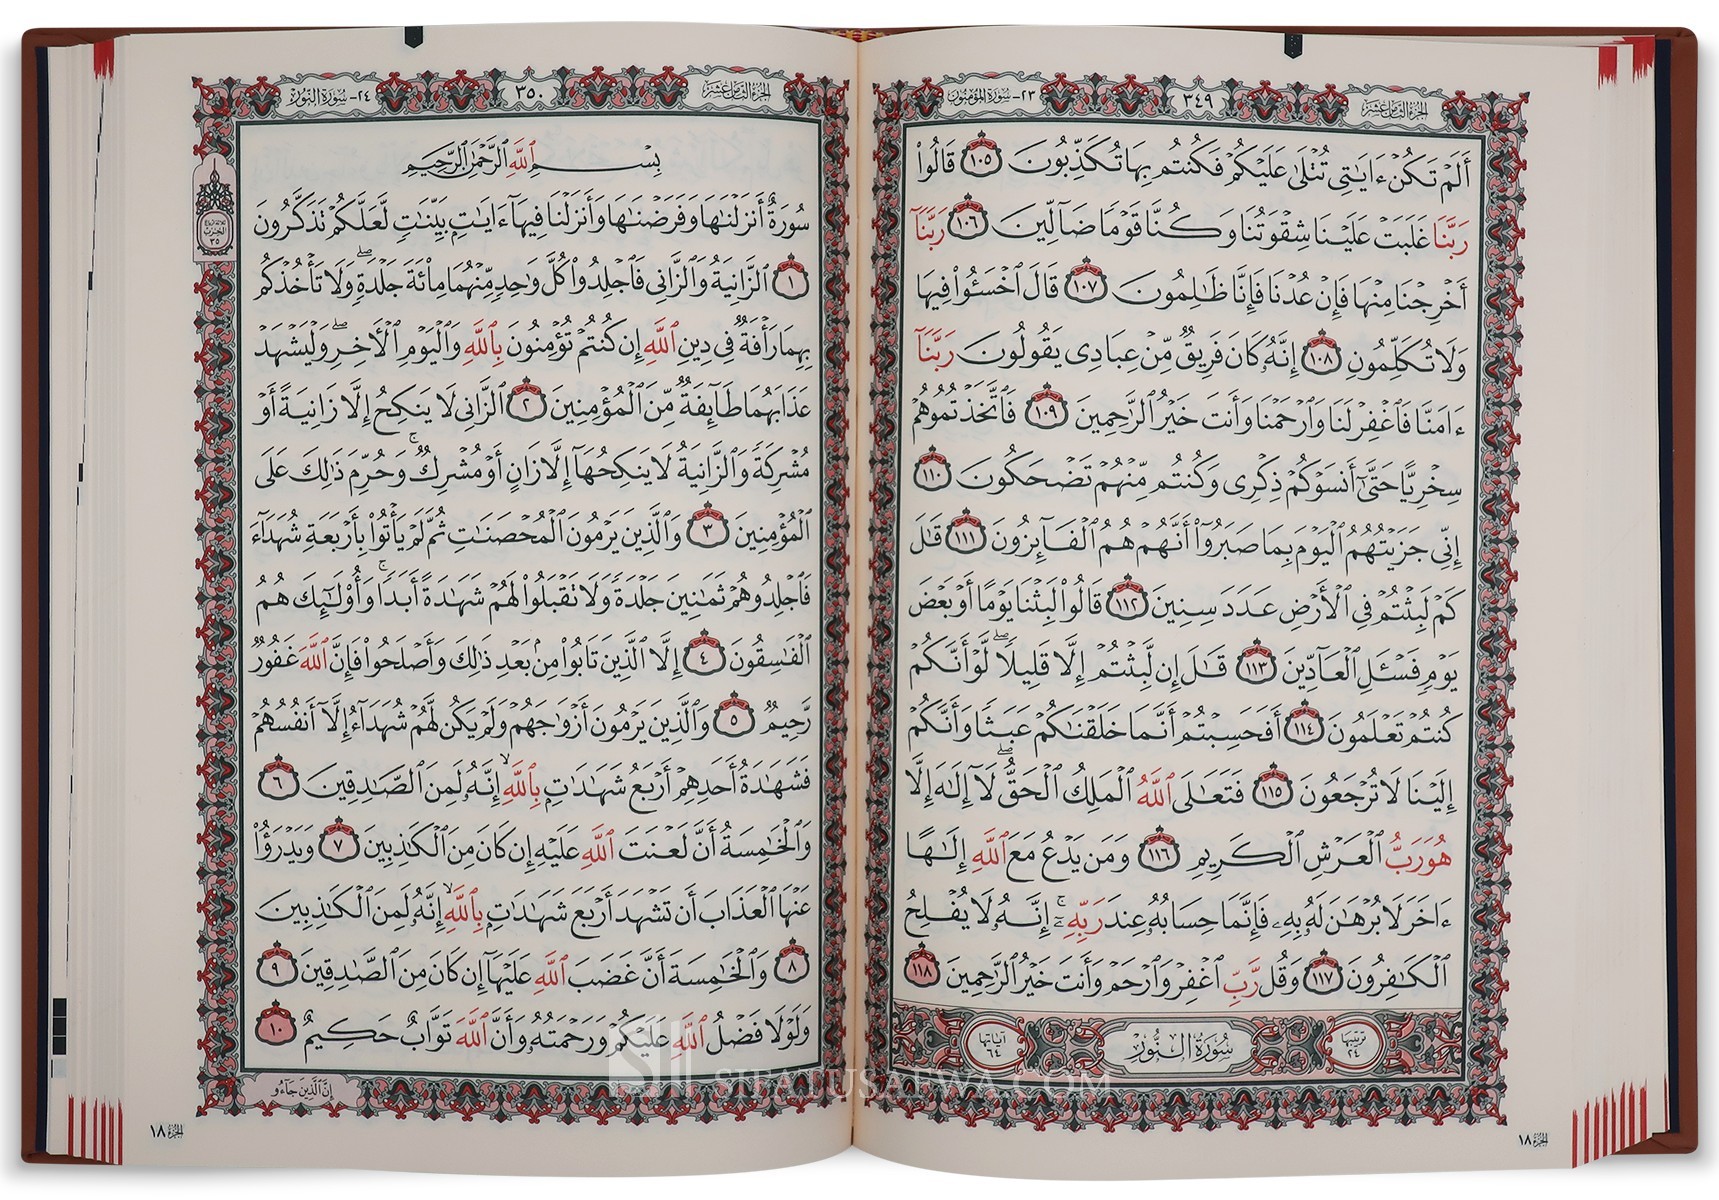 الجزء الثامن عشر
٣٤٩
٢٣- سورة المؤمنون
أَلَمْ تَكُنْ ءَايَٰتِى تُتْلَىٰ عَلَيْكُمْ فَكُنتُم بِهَا تُكَذِّبُونَ ١٠٥ قَالُوا۟
رَبَّنَا غَلَبَتْ عَلَيْنَا شِقْوَتُنَا وَكُنَّا قَوْمًا ضَآلِّينَ ١٠٦ رَبَّنَآ
أَخْرِجْنَا مِنْهَا فَإِنْ عُدْنَا فَإِنَّا ظَٰلِمُونَ ١٠٧ قَالَ ٱخْسَـُٔوا۟ فِيهَا
وَلَا تُكَلِّمُونِ ١٠٨ إِنَّهُۥ كَانَ فَرِيقٌ مِّنْ عِبَادِى يَقُولُونَ رَبَّنَآ
ءَامَنَّا فَٱغْفِرْ لَنَا وَٱرْحَمْنَا وَأَنتَ خَيْرُ ٱلرَّٰحِمِينَ ١٠٩ فَٱتَّخَذْتُمُوهُمْ
سِخْرِيًّا حَتَّىٰٓ أَنسَوْكُمْ ذِكْرِى وَكُنتُم مِّنْهُمْ تَضْحَكُونَ ١١٠
إِنِّى جَزَيْتُهُمُ ٱلْيَوْمَ بِمَا صَبَرُوٓا۟ أَنَّهُمْ هُمُ ٱلْفَآئِزُونَ ١١١ قَٰلَ
كَمْ لَبِثْتُمْ فِى ٱلْأَرْضِ عَدَدَ سِنِينَ ١١٢ قَالُوا۟ لَبِثْنَا يَوْمًا أَوْ بَعْضَ
يَوْمٍ فَسْـَٔلِ ٱلْعَآدِّينَ ١١٣ قَٰلَ إِن لَّبِثْتُمْ إِلَّا قَلِيلًا ۖ لَّوْ أَنَّكُمْ
كُنتُمْ تَعْلَمُونَ ١١٤ أَفَحَسِبْتُمْ أَنَّمَا خَلَقْنَٰكُمْ عَبَثًا وَأَنَّكُمْ
إِلَيْنَا لَا تُرْجَعُونَ ١١٥ فَتَعَٰلَى ٱللَّهُ ٱلْمَلِكُ ٱلْحَقُّ ۖ لَآ إِلَٰهَ إِلَّا
هُوَ رَبُّ ٱلْعَرْشِ ٱلْكَرِيمِ ١١٦ وَمَن يَدْعُ مَعَ ٱللَّهِ إِلَٰهًا
ءَاخَرَ لَا بُرْهَٰنَ لَهُۥ بِهِۦ فَإِنَّمَا حِسَابُهُۥ عِندَ رَبِّهِۦٓ ۚ إِنَّهُۥ لَا يُفْلِحُ
ٱلْكَٰفِرُونَ ١١٧ وَقُل رَّبِّ ٱغْفِرْ وَٱرْحَمْ وَأَنتَ خَيْرُ ٱلرَّٰحِمِينَ ١١٨
ترتيبها ٢٤
سُورَةُ النُّورِ
آياتها ٦٤
الجزء ١٨
الجزء الثامن عشر
٣٥٠
٢٤- سورة النور
بِسْمِ ٱللَّهِ ٱلرَّحْمَٰنِ ٱلرَّحِيمِ
سُورَةٌ أَنزَلْنَٰهَا وَفَرَضْنَٰهَا وَأَنزَلْنَا فِيهَآ ءَايَٰتٍۭ بَيِّنَٰتٍ لَّعَلَّكُمْ تَذَكَّرُونَ
١ ٱلزَّانِيَةُ وَٱلزَّانِى فَٱجْلِدُوا۟ كُلَّ وَٰحِدٍ مِّنْهُمَا مِا۟ئَةَ جَلْدَةٍ ۖ وَلَا تَأْخُذْكُم
بِهِمَا رَأْفَةٌ فِى دِينِ ٱللَّهِ إِن كُنتُمْ تُؤْمِنُونَ بِٱللَّهِ وَٱلْيَوْمِ ٱلْءَاخِرِ ۖ وَلْيَشْهَدْ
عَذَابَهُمَا طَآئِفَةٌ مِّنَ ٱلْمُؤْمِنِينَ ٢ ٱلزَّانِى لَا يَنكِحُ إِلَّا زَانِيَةً أَوْ
مُشْرِكَةً وَٱلزَّانِيَةُ لَا يَنكِحُهَآ إِلَّا زَانٍ أَوْ مُشْرِكٌ ۚ وَحُرِّمَ ذَٰلِكَ عَلَى
ٱلْمُؤْمِنِينَ ٣ وَٱلَّذِينَ يَرْمُونَ ٱلْمُحْصَنَٰتِ ثُمَّ لَمْ يَأْتُوا۟ بِأَرْبَعَةِ شُهَدَآءَ
فَٱجْلِدُوهُمْ ثَمَٰنِينَ جَلْدَةً وَلَا تَقْبَلُوا۟ لَهُمْ شَهَٰدَةً أَبَدًا ۚ وَأُو۟لَٰٓئِكَ هُمُ
ٱلْفَٰسِقُونَ ٤ إِلَّا ٱلَّذِينَ تَابُوا۟ مِنۢ بَعْدِ ذَٰلِكَ وَأَصْلَحُوا۟ فَإِنَّ ٱللَّهَ غَفُورٌ
رَّحِيمٌ ٥ وَٱلَّذِينَ يَرْمُونَ أَزْوَٰجَهُمْ وَلَمْ يَكُن لَّهُمْ شُهَدَآءُ إِلَّآ أَنفُسُهُمْ
فَشَهَٰدَةُ أَحَدِهِمْ أَرْبَعُ شَهَٰدَٰتٍۭ بِٱللَّهِ ۙ إِنَّهُۥ لَمِنَ ٱلصَّٰدِقِينَ ٦
وَٱلْخَٰمِسَةُ أَنَّ لَعْنَتَ ٱللَّهِ عَلَيْهِ إِن كَانَ مِنَ ٱلْكَٰذِبِينَ ٧ وَيَدْرَؤُا۟
عَنْهَا ٱلْعَذَابَ أَن تَشْهَدَ أَرْبَعَ شَهَٰدَٰتٍۭ بِٱللَّهِ ۙ إِنَّهُۥ لَمِنَ ٱلْكَٰذِبِينَ
٨ وَٱلْخَٰمِسَةَ أَنَّ غَضَبَ ٱللَّهِ عَلَيْهَآ إِن كَانَ مِنَ ٱلصَّٰدِقِينَ ٩
وَلَوْلَا فَضْلُ ٱللَّهِ عَلَيْكُمْ وَرَحْمَتُهُۥ وَأَنَّ ٱللَّهَ تَوَّابٌ حَكِيمٌ ١٠
إِنَّ ٱلَّذِينَ جَآءُو
الحزب ٣٥
الجزء ١٨
SIFATUSAFWA.COM